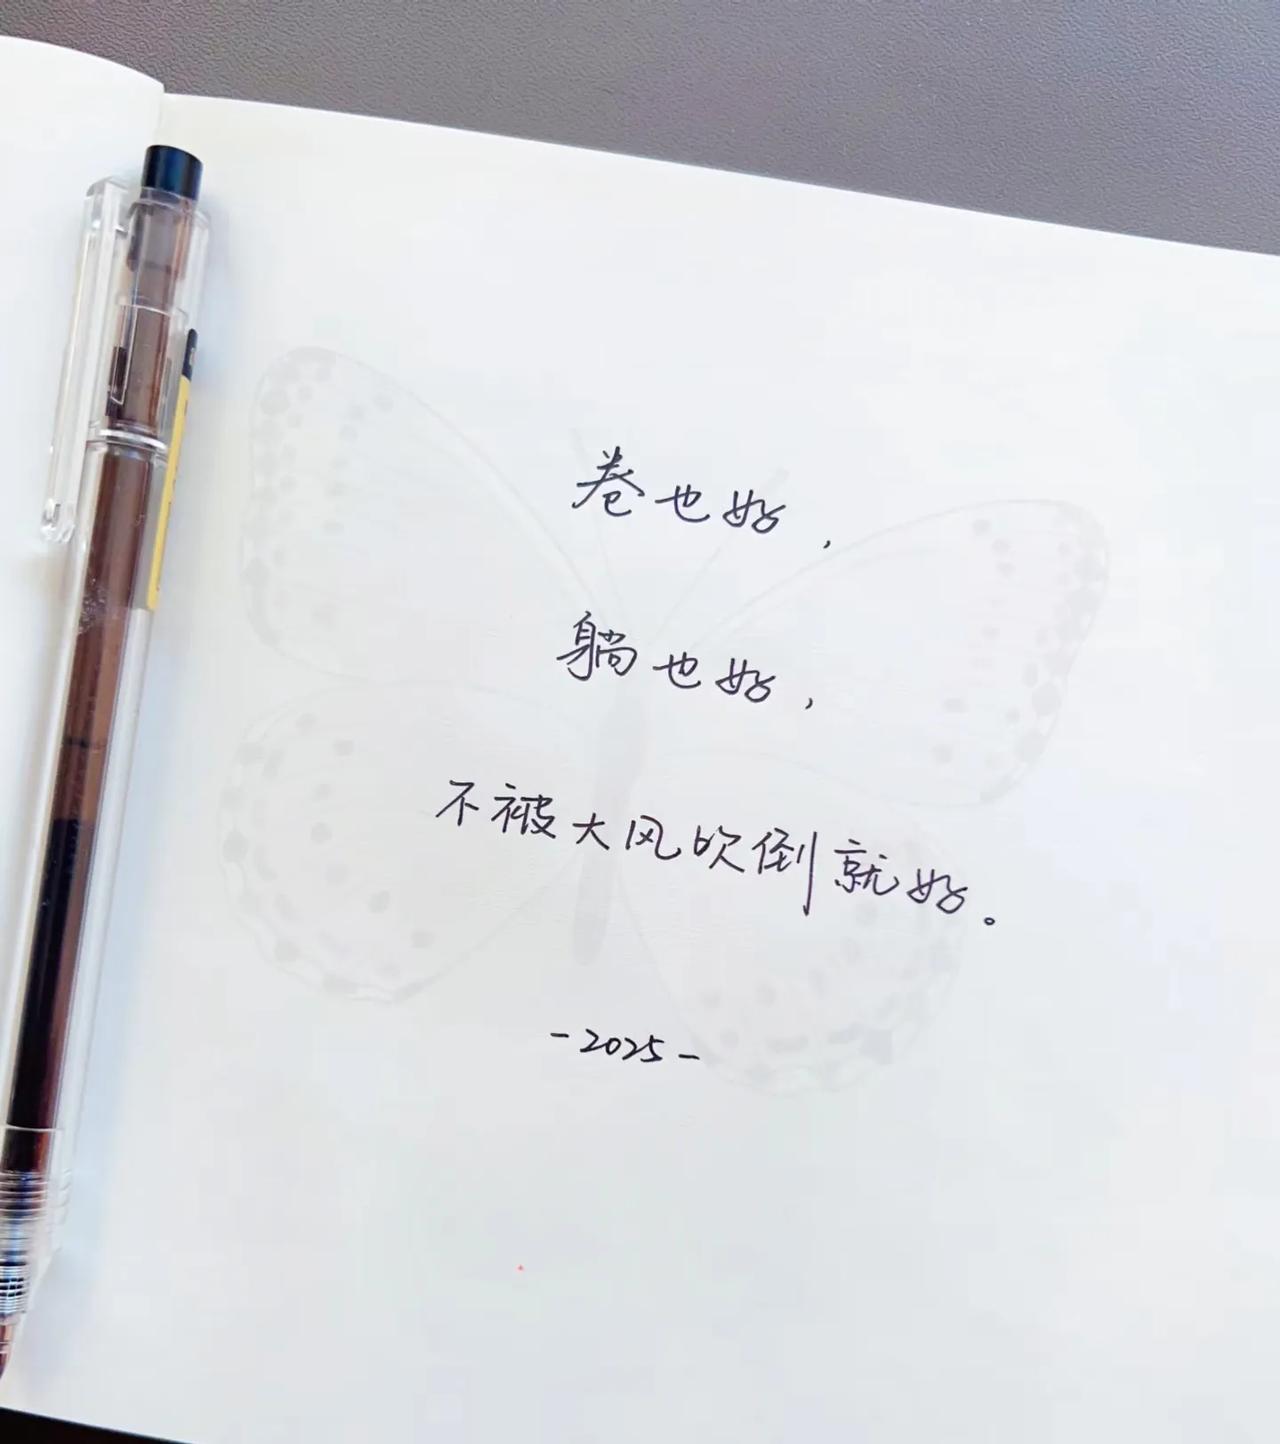 卷也好，
躺也好，
不被大风吹倒就好。
-2025-